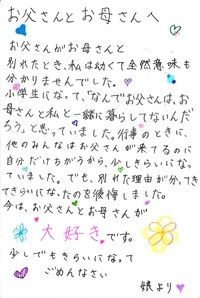 お父さんとお母さんへ
お父さんがお母さんと
別れたとき、私は幼くて全然意味も
分かりませんでした。
小学生になって、「なんでお父さんは、お
母さんと私と一緒に暮らしてないんだ
ろう」と思っていました。行事のときに、
他のみんなはお父さんが来てるのに
自分だけちがうから、少しきらいになっ
ていました。でも、別れた理由が分かってき
てきらいになったのを後悔しました。
今は、お父さんとお母さんが
大好きです。
少しでもきらいになって
ごめんなさい
娘より